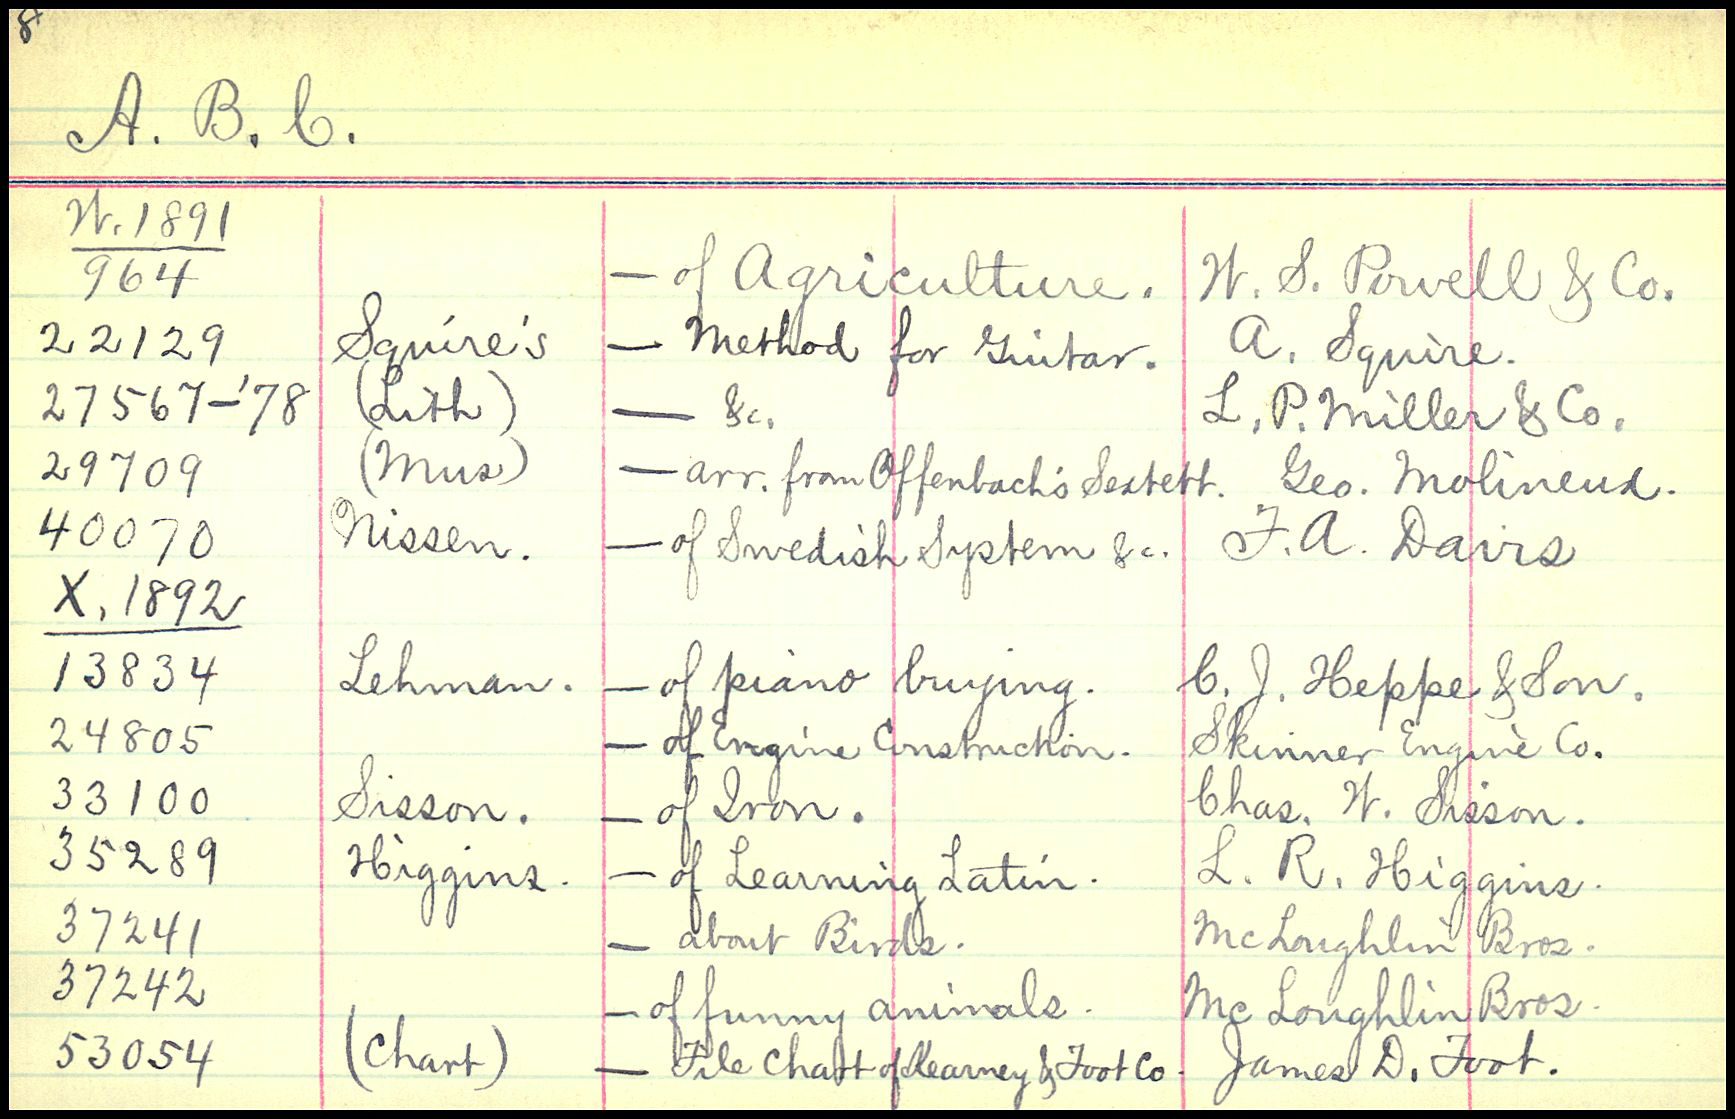 8
A. B. C.
W. 1891
964 — of Agriculture. W. S. Powell & Co.
22129 Squire's — Method for Guitar. A. Squire.
27567–'78 (Lith) — &c. L. P. Miller & Co.
29709 (Mus) — arr. from Offenbach's Sextett. Geo. Molineux.
40070 Nissen. — of Swedish System &c. F. A. Davis
X, 1892
13834 Lehman. — of piano buying. C. J. Heppe & Son.
24805 — of Engine Construction. Skinner Engine Co.
33100 Sisson. — of Iron. Chas. W. Sisson.
35289 Higgins. — of Learning Latin. L. R. Higgins.
37241 — about Birds. McLoughlin Bros.
37242 — of funny animals. McLoughlin Bros.
53054 (Chart) — File Chart of Kearney & Foot Co. James D. Foot.